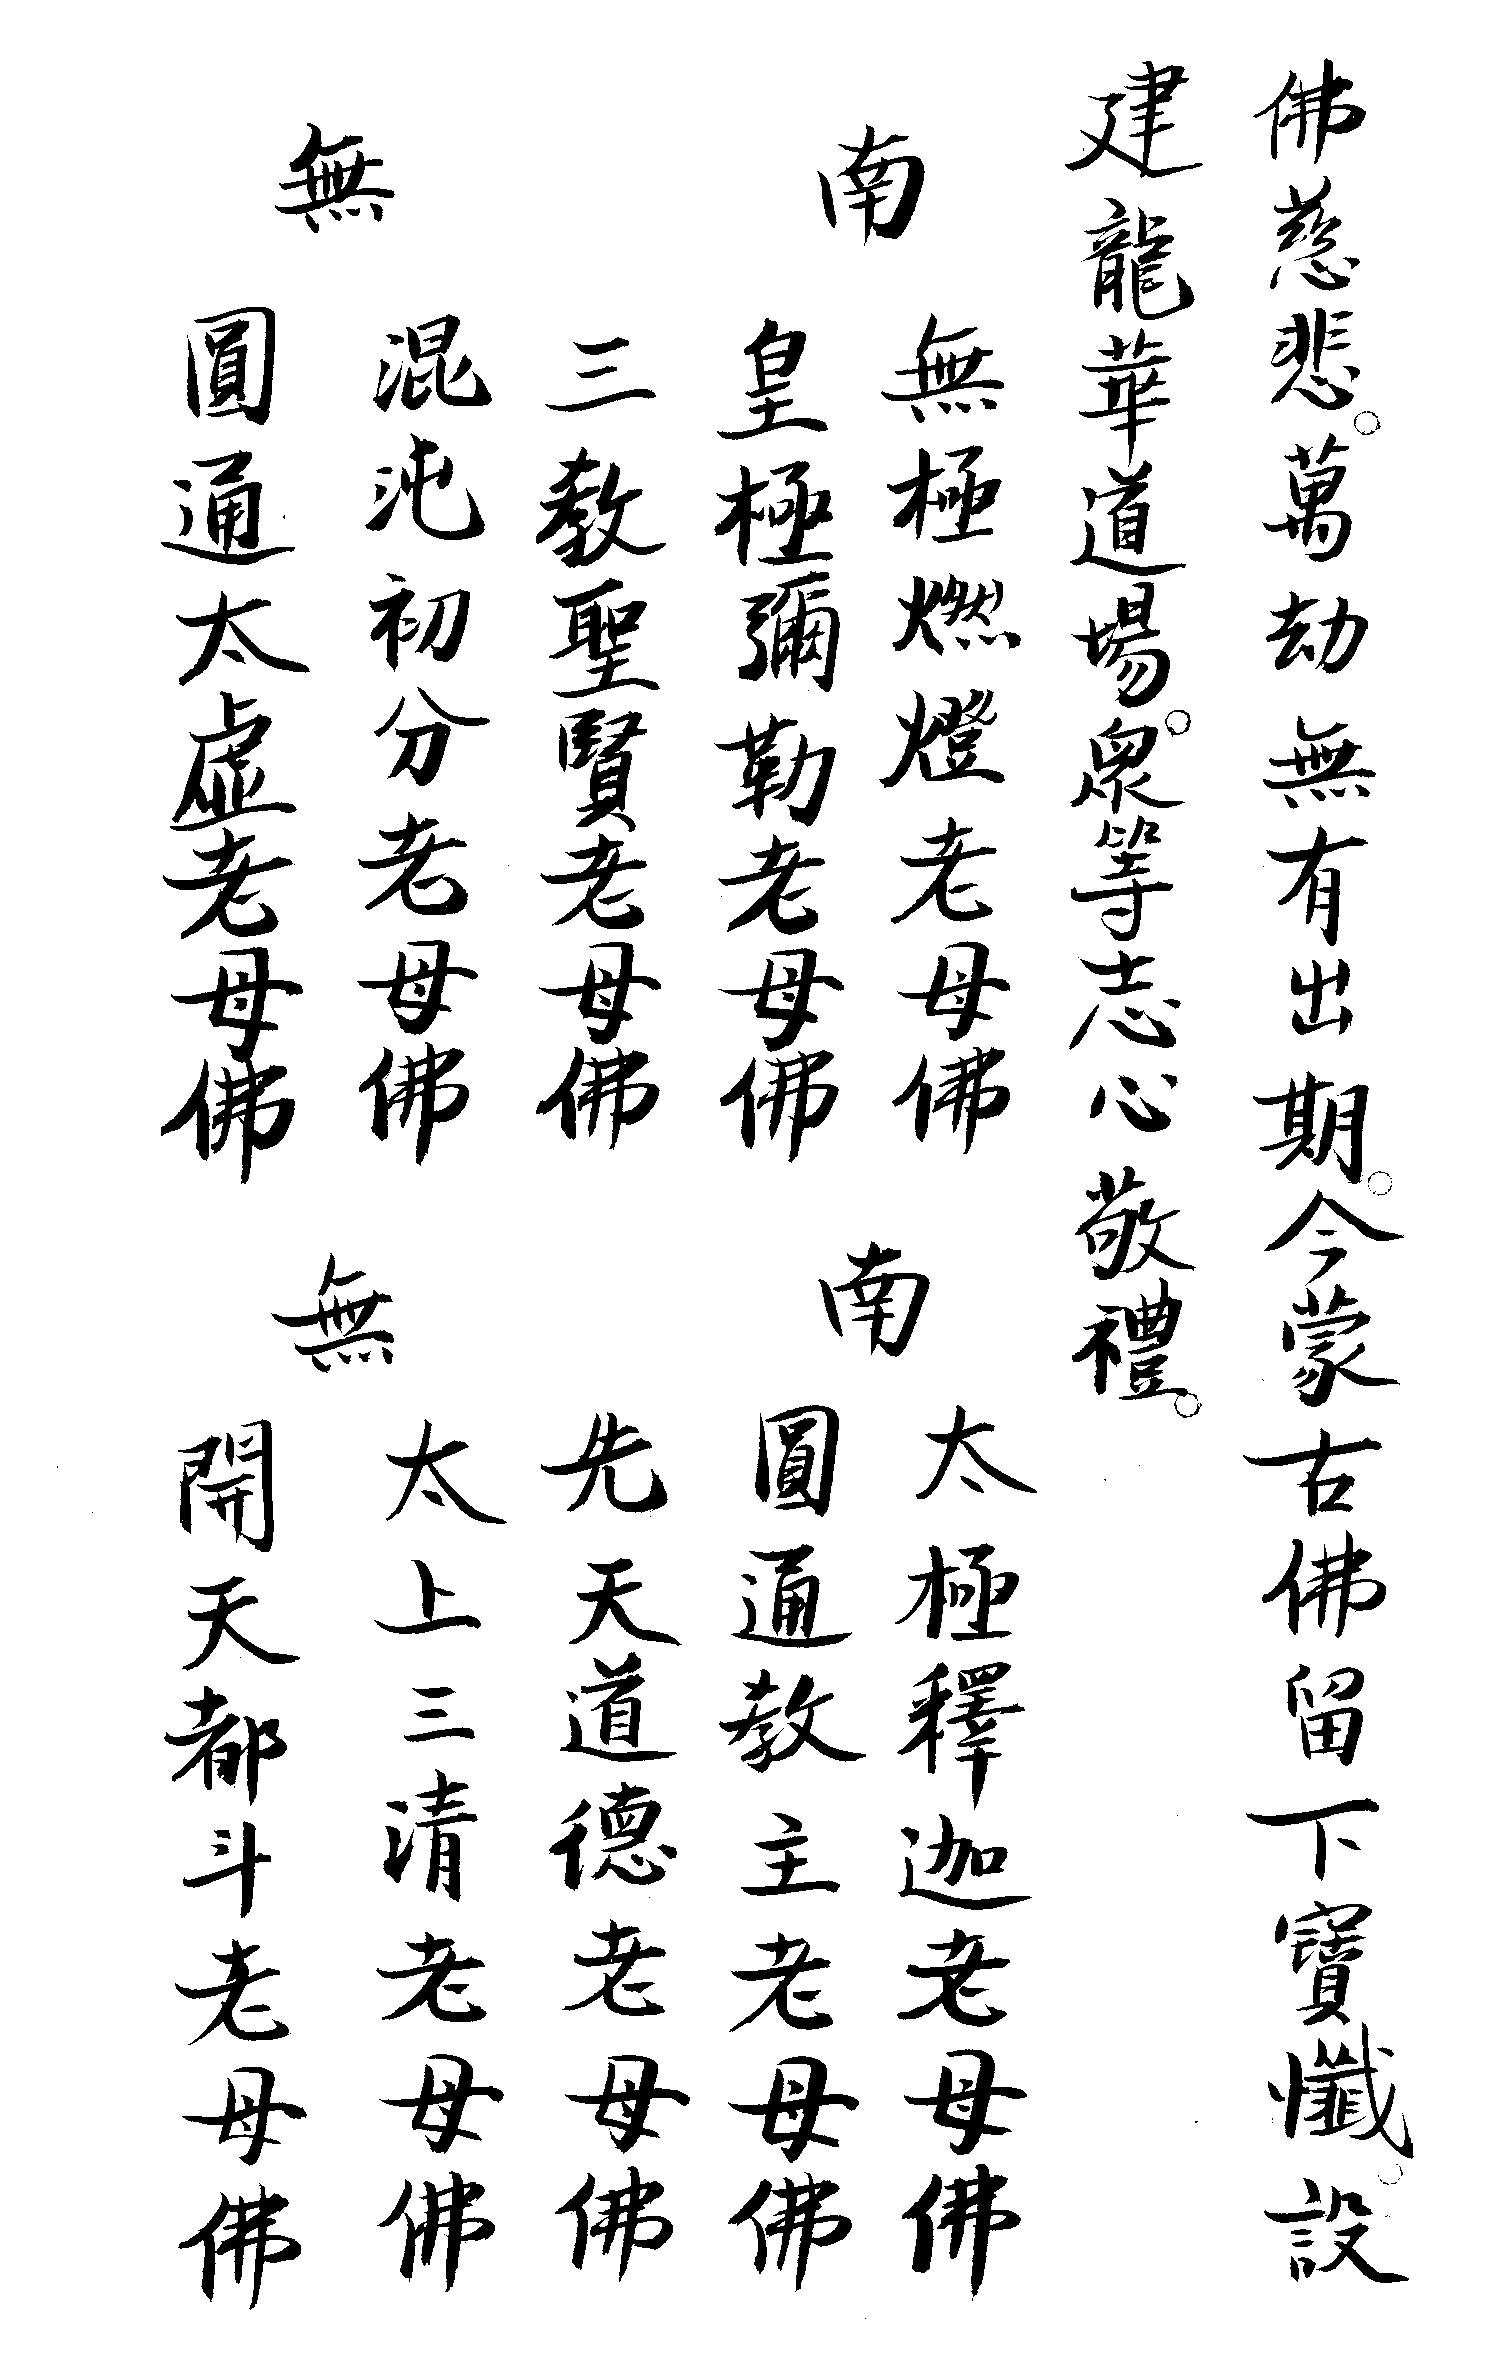 佛慈悲。萬劫無有出期。今蒙古佛留下寶懺。設
建龍華道場。眾等志心敬禮。
南無
無極燃燈老母佛
皇極彌勒老母佛
三教聖賢老母佛
混沌初分老母佛
圓通太虛老母佛
南無
太極釋迦老母佛
圓通教主老母佛
先天道德老母佛
太上三清老母佛
開天都斗老母佛